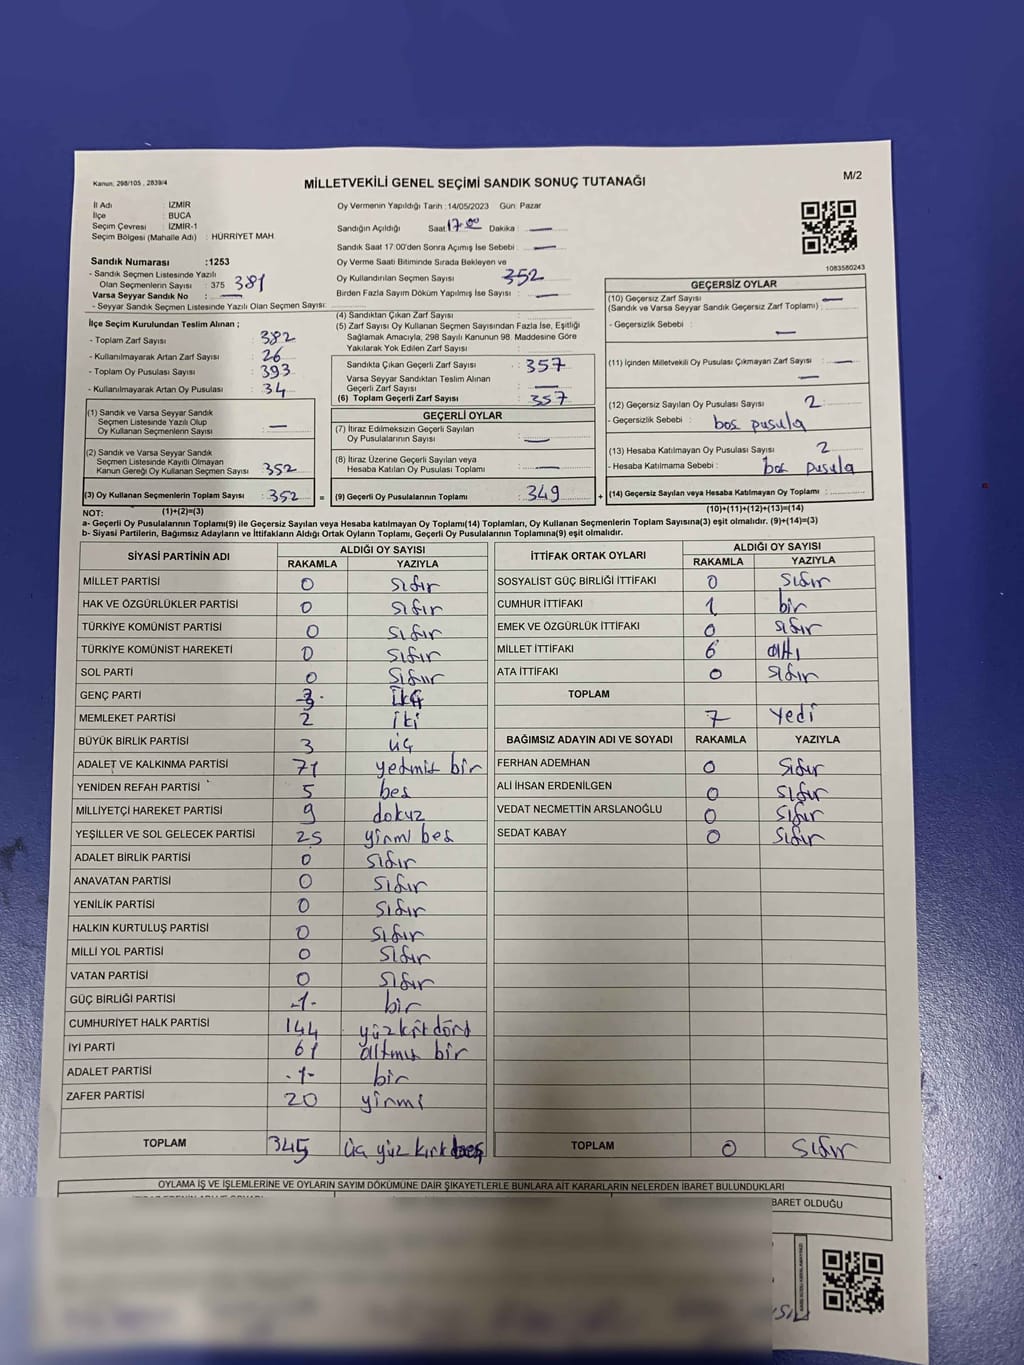 Kanun: 298/105 , 2839/4
MİLLETVEKİLİ GENEL SEÇİMİ SANDIK SONUÇ TUTANAĞI
M/2
İl Adı : İZMİR
İlçe : BUCA
Seçim Çevresi : İZMİR-1
Seçim Bölgesi (Mahalle Adı) : HÜRRİYET MAH.
Oy Vermenin Yapıldığı Tarih :14/05/2023 Gün: Pazar
Sandığın Açıldığı Saat: 17.00 Dakika : —
Sandık Saat 17:00'den Sonra Açımış İse Sebebi : —
Oy Verme Saati Bitiminde Sırada Bekleyen ve
Oy Kullandırılan Seçmen Sayısı : 352
Birden Fazla Sayım Döküm Yapılmış İse Sayısı : —
1083580243
Sandık Numarası :1253
- Sandık Seçmen Listesinde Yazılı
Olan Seçmenlerin Sayısı : 375 381
Varsa Seyyar Sandık No : —
- Seyyar Sandık Seçmen Listesinde Yazılı Olan Seçmen Sayısı:
İlçe Seçim Kurulundan Teslim Alınan ;
- Toplam Zarf Sayısı : 382
- Kullanılmayarak Artan Zarf Sayısı : 26
- Toplam Oy Pusulası Sayısı : 393
- Kullanılmayarak Artan Oy Pusulası : 34
(1) Sandık ve Varsa Seyyar Sandık
Seçmen Listesinde Yazılı Olup
Oy Kullanan Seçmenlerin Sayısı : —
(2) Sandık ve Varsa Seyyar Sandık
Seçmen Listesinde Kayıtlı Olmayan
Kanun Gereği Oy Kullanan Seçmen Sayısı : 352
(3) Oy Kullanan Seçmenlerin Toplam Sayısı : 352 =
(4) Sandıktan Çıkan Zarf Sayısı :
(5) Zarf Sayısı Oy Kullanan Seçmen Sayısından Fazla İse, Eşitliği
Sağlamak Amacıyla, 298 Sayılı Kanunun 98. Maddesine Göre
Yakılarak Yok Edilen Zarf Sayısı :
Sandıkta Çıkan Geçerli Zarf Sayısı : 357
Varsa Seyyar Sandıktan Teslim Alınan
Geçerli Zarf Sayısı : —
(6) Toplam Geçerli Zarf Sayısı : 357
GEÇERLİ OYLAR
(7) İtiraz Edilmeksizin Geçerli Sayılan
Oy Pusulalarının Sayısı : —
(8) İtiraz Üzerine Geçerli Sayılan veya
Hesaba Katılan Oy Pusulası Toplamı : —
(9) Geçerli Oy Pusulalarının Toplamı : 349 +
GEÇERSİZ OYLAR
(10) Geçersiz Zarf Sayısı : —
(Sandık ve Varsa Seyyar Sandık Geçersiz Zarf Toplamı)
- Geçersizlik Sebebi : —
(11) İçinden Milletvekili Oy Pusulası Çıkmayan Zarf Sayısı : —
—
(12) Geçersiz Sayılan Oy Pusulası Sayısı : 2
- Geçersizlik Sebebi : bos pusula
(13) Hesaba Katılmayan Oy Pusulası Sayısı : 2
- Hesaba Katılmama Sebebi : bos pusula
(14) Geçersiz Sayılan veya Hesaba Katılmayan Oy Toplamı :
NOT: (1)+(2)=(3) (10)+(11)+(12)+(13)=(14)
a- Geçerli Oy Pusulalarının Toplamı(9) ile Geçersiz Sayılan veya Hesaba katılmayan Oy Toplamı(14) Toplamları, Oy Kullanan Seçmenlerin Toplam Sayısına(3) eşit olmalıdır. (9)+(14)=(3)
b- Siyasi Partilerin, Bağımsız Adayların ve İttifakların Aldığı Ortak Oyların Toplamı, Geçerli Oy Pusulalarının Toplamına(9) eşit olmalıdır.
SİYASİ PARTİNİN ADI ALDIĞI OY SAYISI
RAKAMLA YAZIYLA
MİLLET PARTİSİ 0 sıfır
HAK VE ÖZGÜRLÜKLER PARTİSİ 0 sıfır
TÜRKİYE KOMÜNİST PARTİSİ 0 sıfır
TÜRKİYE KOMÜNİST HAREKETİ 0 sıfır
SOL PARTİ 0 sıfır
GENÇ PARTİ
MEMLEKET PARTİSİ 2 iki
BÜYÜK BİRLİK PARTİSİ 3 üç
ADALET VE KALKINMA PARTİSİ 71 yetmiş bir
YENİDEN REFAH PARTİSİ 5 bes
MİLLİYETÇİ HAREKET PARTİSİ 9 dokuz
YEŞİLLER VE SOL GELECEK PARTİSİ 25 yirmi bes
ADALET BİRLİK PARTİSİ 0 sıfır
ANAVATAN PARTİSİ 0 sıfır
YENİLİK PARTİSİ 0 sıfır
HALKIN KURTULUŞ PARTİSİ 0 sıfır
MİLLİ YOL PARTİSİ 0 sıfır
VATAN PARTİSİ 0 sıfır
GÜÇ BİRLİĞİ PARTİSİ -1- bir
CUMHURİYET HALK PARTİSİ 144 yüz kırk dörd
İYİ PARTİ 61 altmış bir
ADALET PARTİSİ -1- bir
ZAFER PARTİSİ 20 yirmi
TOPLAM 345 üç yüz kırk beş
İTTİFAK ORTAK OYLARI ALDIĞI OY SAYISI
RAKAMLA YAZIYLA
SOSYALİST GÜÇ BİRLİĞİ İTTİFAKI 0 sıfır
CUMHUR İTTİFAKI 1 bir
EMEK VE ÖZGÜRLÜK İTTİFAKI 0 sıfır
MİLLET İTTİFAKI 6 altı
ATA İTTİFAKI 0 sıfır
TOPLAM 7 yedi
BAĞIMSIZ ADAYIN ADI VE SOYADI RAKAMLA YAZIYLA
FERHAN ADEMHAN 0 sıfır
ALİ İHSAN ERDENİLGEN 0 sıfır
VEDAT NECMETTİN ARSLANOĞLU 0 sıfır
SEDAT KABAY 0 sıfır
TOPLAM 0 sıfır
OYLAMA İŞ VE İŞLEMLERİNE VE OYLARIN SAYIM DÖKÜMÜNE DAİR ŞİKAYETLERLE BUNLARA AİT KARARLARIN NELERDEN İBARET BULUNDUKLARI
BARET OLDUĞU